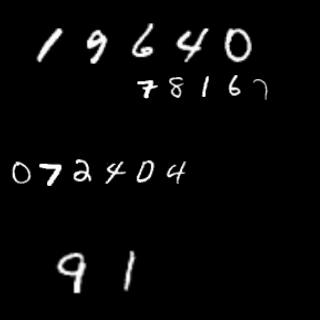 19640
78167
072404
91